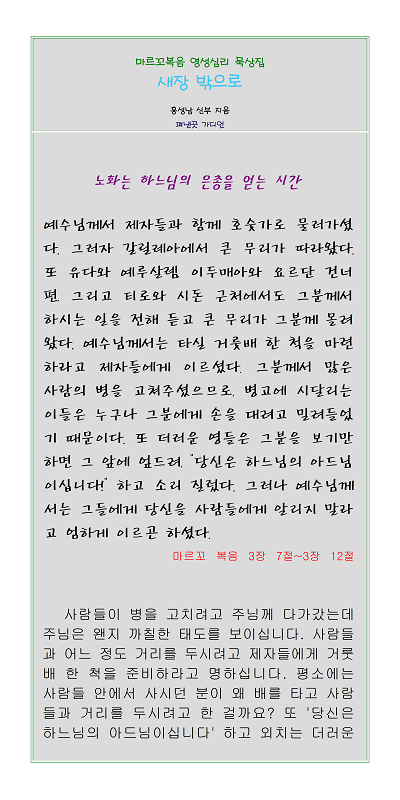 마르꼬복음 영성심리 묵상집
새장 밖으로
홍성남 신부 지음
펴낸곳 가디언
노화는 하느님의 은총을 얻는 시간
예수님께서 제자들과 함께 호숫가로 물러가셨
다. 그러자 갈릴래아에서 큰 무리가 따라왔다.
또 유다와 예루살렘, 이두매아와 요르단 건너
편, 그리고 티로와 시돈 근처에서도 그분께서
하시는 일을 전해 듣고 큰 무리가 그분께 몰려
왔다. 예수님께서는 타실 거룻배 한 척을 마련
하라고 제자들에게 이르셨다. 그분께서 많은
사람의 병을 고쳐주셨으므로, 병고에 시달리는
이들은 누구나 그분에게 손을 대려고 밀려들었
기 때문이다. 또 더러운 영들은 그분을 보기만
하면 그 앞에 엎드려, "당신은 하느님의 아드님
이십니다!" 하고 소리 질렀다. 그러나 예수님께
서는 그들에게 당신을 사람들에게 알리지 말라
고 엄하게 이르곤 하셨다.
마르꼬 복음 3장 7절~3장 12절
사람들이 병을 고치려고 주님께 다가갔는데
주님은 왠지 까칠한 태도를 보이십니다. 사람들
과 어느 정도 거리를 두시려고 제자들에게 거룻
배 한 척을 준비하라고 명하십니다. 평소에는
사람들 안에서 사시던 분이 왜 배를 타고 사람
들과 거리를 두시려고 한 걸까요? 또 '당신은
하느님의 아드님이십니다' 하고 외치는 더러운